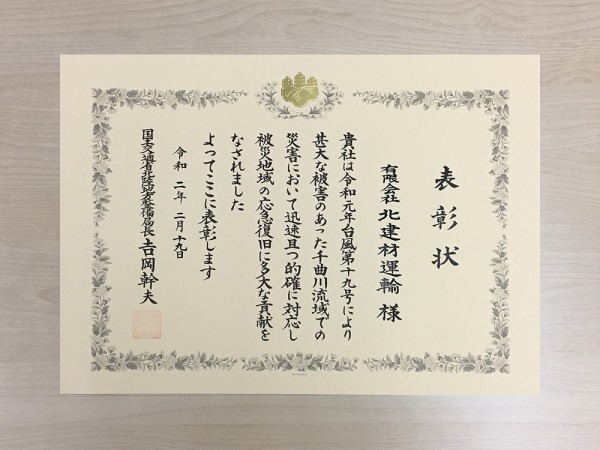 表彰状
有限会社 北建材運輸 様
貴社は令和元年台風第十九号により
甚大な被害のあった千曲川流域での
災害において迅速且つ的確に対応し
被災地域の応急復旧に多大な貢献を
なされました
よってここに表彰します
令和二年二月十九日
国土交通省北陸地方整備局長 吉岡幹夫